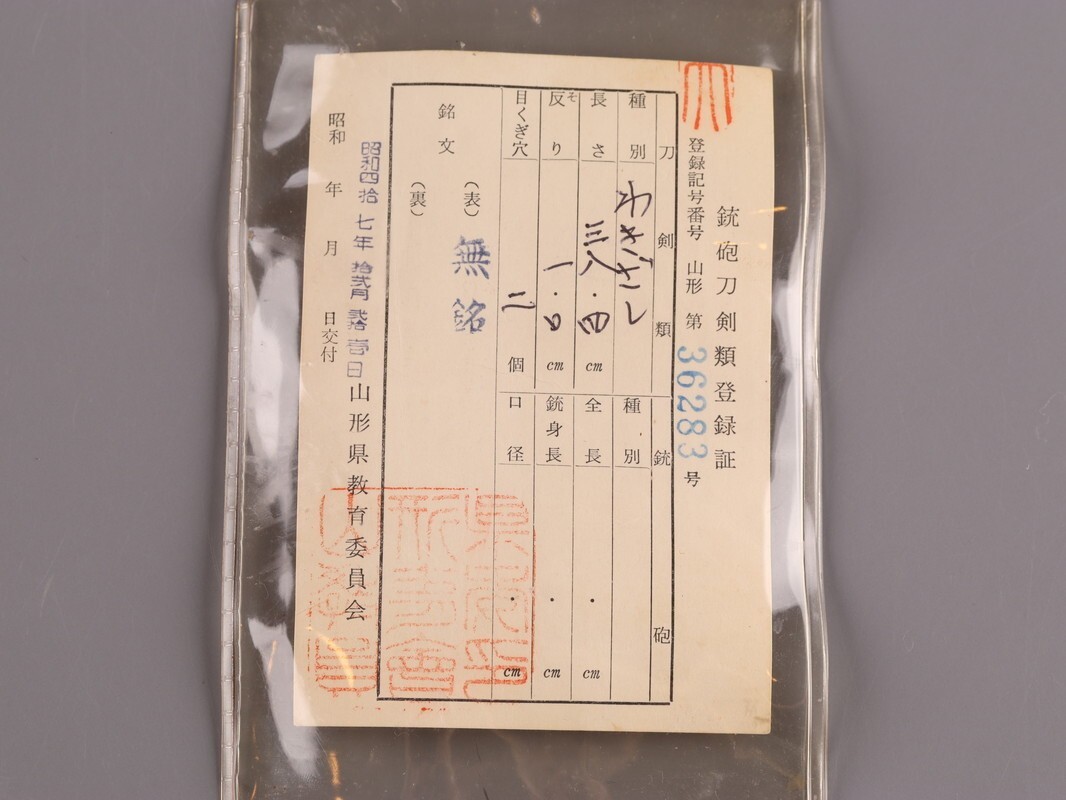 銃砲刀剣類登録証
登録記号番号 山形 第 36283 号
刀剣類
種別 わきざし
長さ 三八・四 cm
反り そ 一・〇 cm
目くぎ穴 二 個
銃砲
種別
全長 ・ cm
銃身長 ・ cm
口径 ・ cm
銘文
(表) 無銘
(裏)
昭和四拾七年拾弐月弐拾壱日
昭和 年 月 日交付
山形県教育委員会